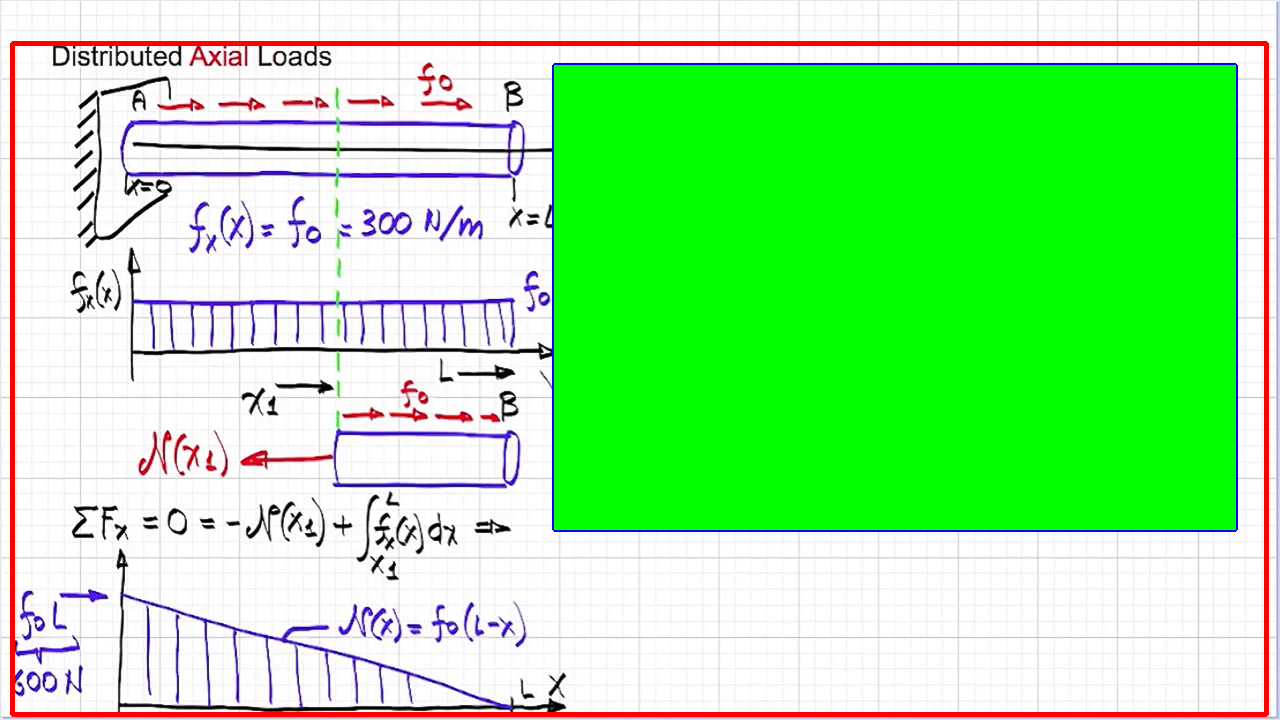 Distributed Axial Loads
f0
A B
x=0
x=L
fx(x) = f0 = 300 N/m
fx(x) f0
L
x1 f0 B
N(x1)
ΣFx = 0 = -N(x1) + ∫x1^L fx(x) dx ⇒
f0L N(x) = f0(L-x)
600 N
L X